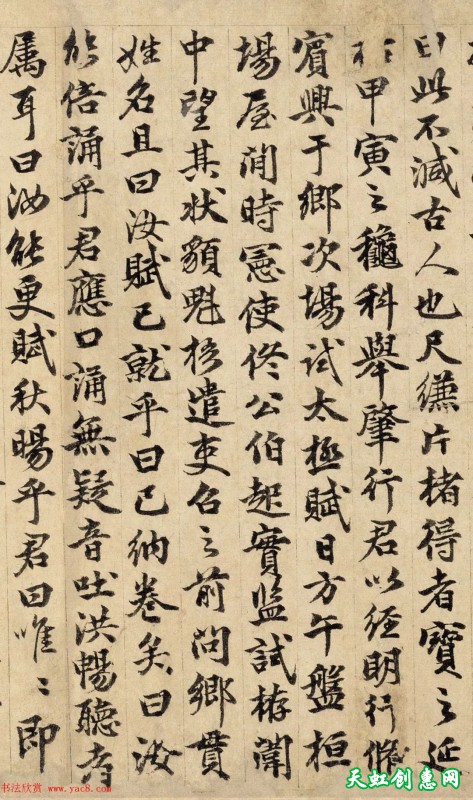 印此不減古人也尺縑片楮得者寶之延
祐甲寅之龝科舉肇行君以經明行脩
賓興于鄉次場試太極賦日方午盤桓
場屋間時憲使佟公伯起實監試梄闈
中望其狀貌魁梧遣吏召之前問鄉貫
姓名且曰汝賦已就乎曰已納卷矣曰汝
能倍誦乎君應口誦無疑音吐洪暢聽者
属耳曰汝能更賦秋暘乎君曰唯〻即
书法欣赏 www.yac8.com
天虹创惠网